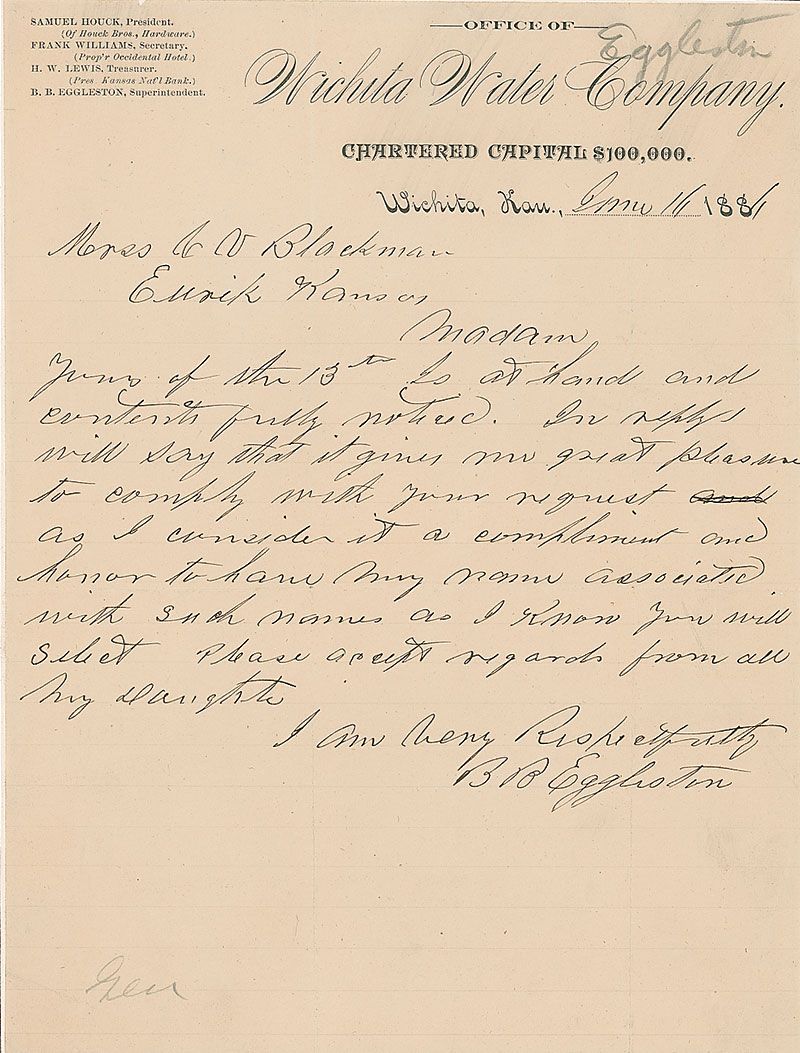 SAMUEL HOUCK, President.
(Of Houck Bros., Hardware.)
FRANK WILLIAMS, Secretary.
(Prop'r Occidental Hotel.)
H. W. LEWIS, Treasurer.
(Pres Kansas Nat'l Bank.)
B. B. EGGLESTON, Superintendent.
OFFICE OF
Eggleston
Wichita Water Company.
CHARTERED CAPITAL $100,000.
Wichita, Kan., June 16 1886
Mrss C V Blackman
Eurik Kansas
Madam
Yours of the 13th Is at hand and
contents fully noticed. In reply
will say that it gives me great pleasure
to comply with your request and
as I consider it a compliment and
honor to have my name associated
with such names as I know you will
select Please accept regards from all
my daughte
I am very Respectfully
B B Eggleston
Gen